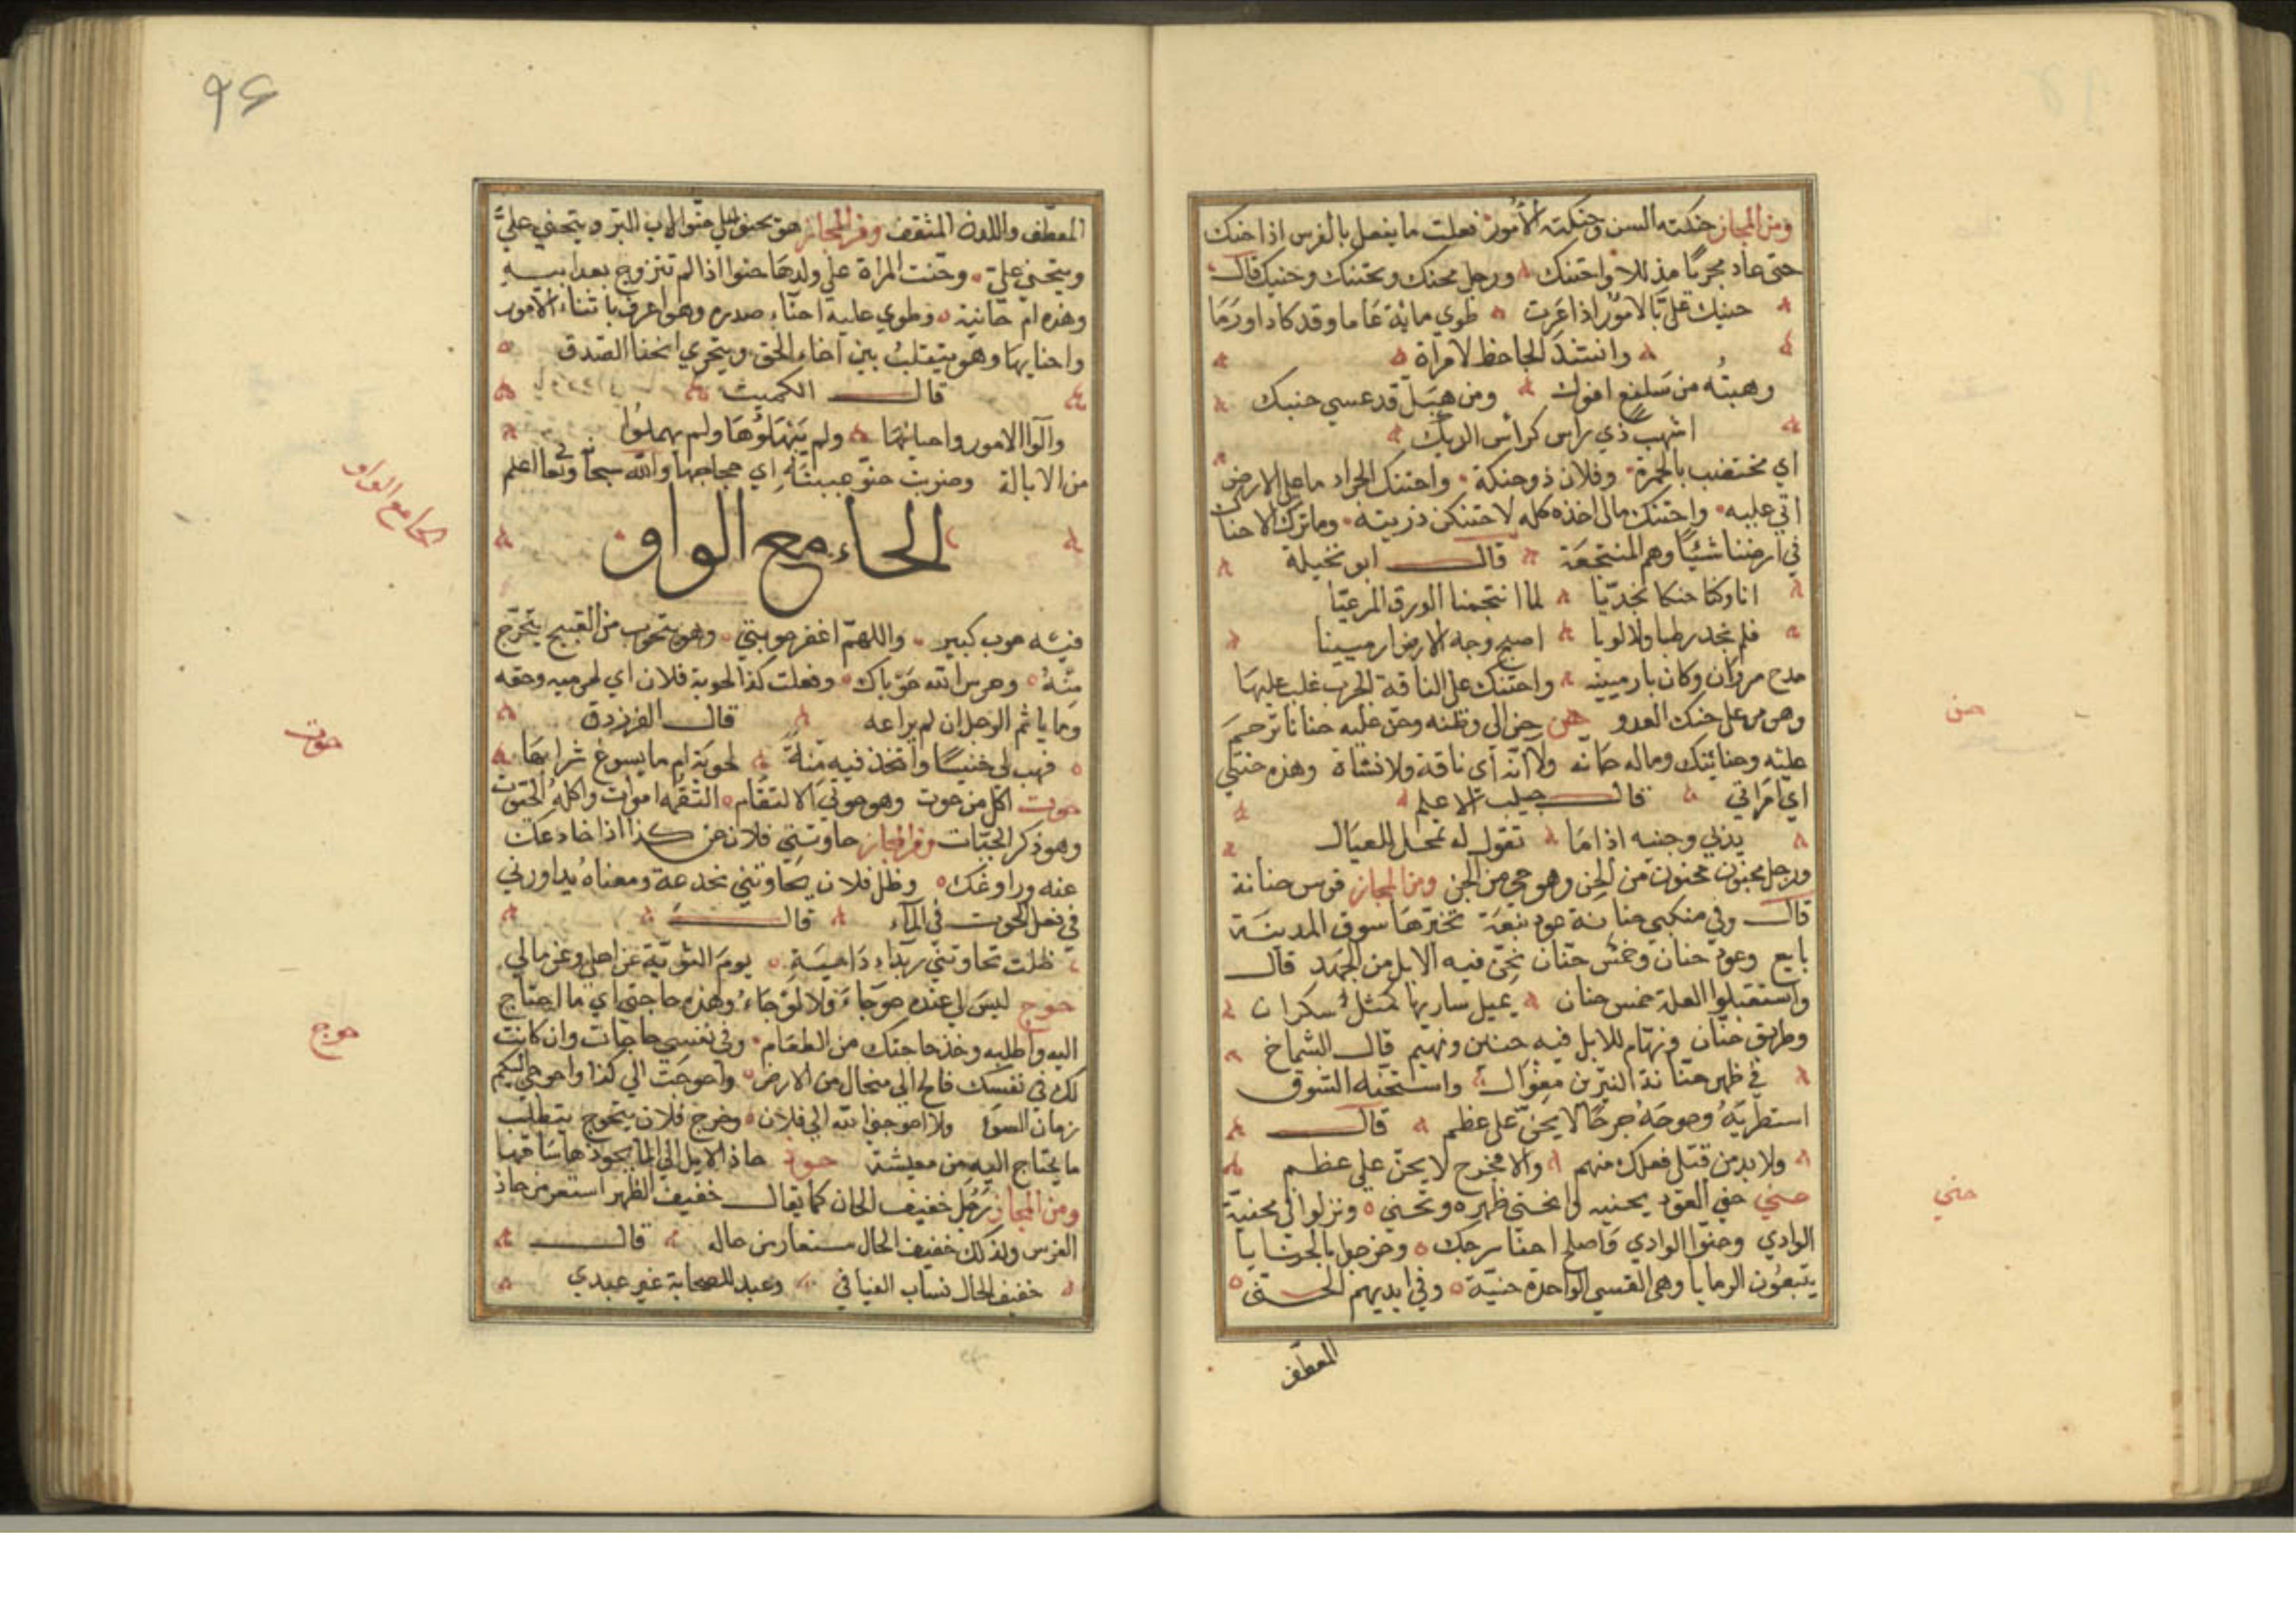 ومن المجاز حنكته السن وحنكته الأمور فعلت ما يفعل بالفرس اذا حنك
حتى عاد مجربًا مذللا واحتنك ورجل محنك ومحتنك وحنيك قال
حنيك علىّ بالامور اذا عرت طوي ماية عاما وقد كاد اورما
وانشد الجاحظ لامرأة
وهبته من سلفع افوك ومن هبل قد عسي حنيك
اشهب ذي راس كرأس الديك
اي مختضب بالحمرة وفلان ذو حنكة واحتنك الجراد ما على الارض
اتي عليه واحتنك مالي اخذه كله لاحتنكن ذريته وما ترك الاحناك
في ارضنا شيئًا وهم المنتجعة قال ابو نخيلة
انا وكنا حنكا نجديّا لما انتجعنا الورق المرعيّا
فلم نجد رطبا ولا لويا اصبح وجه الارض ارمينيا
مدح مروان وكان بارمينيه واحتنك على الناقة الجرب غلب عليها
وهي من على حنك العدو حن حن الى وطنه وحن عليه حنانا ترحم
عليه وحنانيك وماله حانه ولا آنه أي ناقة ولا شاة وهذه حنتي
اي امراتي قال حبيب الاعلم
يدني وجنبه اذا ما تقول له تمحل للعيال
ورجل مجنون محنون من الحن وهو حي من الجن ومن المجاز قوس حنانة
قال وفي منكبي حنانة عود نبعة تخيرها سوق المدينة
بايع وعود حنان وخمس حنان تحن فيه الابل من الجهد قال
واستقبلوا ليلة خمس حنان يميل ساريها كمثل سكران
وطريق حنان ونهام للابل فيه حنين ونهيم قال الشماخ
في ظهر حنانة النيرين مغوال واستحنه الشوق
استطربه وجرحه جرحًا لا يحن على عظم قال
ولا بد من قتلى فعلك منهم والا فجرح لا يحن علي عظم
حني حني العود يحنيه وانحنى ظهره وتحني ونزلوا في محنية
الوادي وحنوا الوادي واصلح احنا سرجك وخرجوا بالحنايا
يتبعون الرمايا وهي القسي الواحدة حنية وفي ايديهم الحني
المعطف
حن
حني
٩٤
المعطف واللدن المثقف ومن المجاز هو يحنو علي حنو الاب البر ويتحني عليّ
ويتحني علي وحنت المراة علي ولدها حنوا اذا لم تتزوج بعد ابيه
وهذه ام حانية وطوي عليه احناء صدره وهو اعرف باثناء الامور
واحنايها وهو يتقلب بين احناء الحق ويتحري انحاء الصدق
قال الكميت
وآلوا الامور واحيانها ولم ينهلوها ولم يهملوا
من الايالة وضربت حنو عينه اي حجاجها والله سبحا وتعا اعلم
الحاء مع الواو
الحا مع الواو
فيه حوب كبير واللهم اغفر حوبتي وهو يتحوب من القبيح يتحرج
منه وحرس الله حوباك وفعلت كذا لحوبة فلان اي لحرمته وحقه
وما ياثم الرجل ان لم يراعه قال الفرزدق
فهب لي خنيسًا واتخذ فيه منة لحوبة ام ما يسوغ شرابها
حوت اكل من حوت وهو حوتي الالتقام التقمه اموات واكله الحوت
وهو ذكر الحيات ومن المجاز حاوتني فلان عن كذا اذا خادعك
عنه وراوغك وظل فلان يحاوتني بخدعة ومعناه يداورني
في فعل الحوت في الماء قال
ظلت تحاوتني ربداء داهية يوم الثوية عن اهلي وعن مالي
حوج ليس لي عنده حوجاء ولا لوجاء وهذه حاجتي اي ما احتاج
اليه واطلبه وخذ حاجتك من الطعام وفي نفسي حاجات وان كانت
لك في نفسك فالح الى منحال من الارض واحوجت الي كذا واحوجني اليكم
زمان السوء ولا احوجني الله الي فلان وخرج فلان يتحوج يتطلب
ما يحتاج اليه من معيشة حوذ حاذ الابل الى الما يحوذها ساقها
ومن المجاز رجل خفيف الحاذ كما يقال خفيف الظهر استعير من حاذ
الفرس وكذلك خفيف الحال مستعار من حاله قال
خفيف الحال نساب الفيافي وعبد للصحابة غير عبدي
حوت
حوج